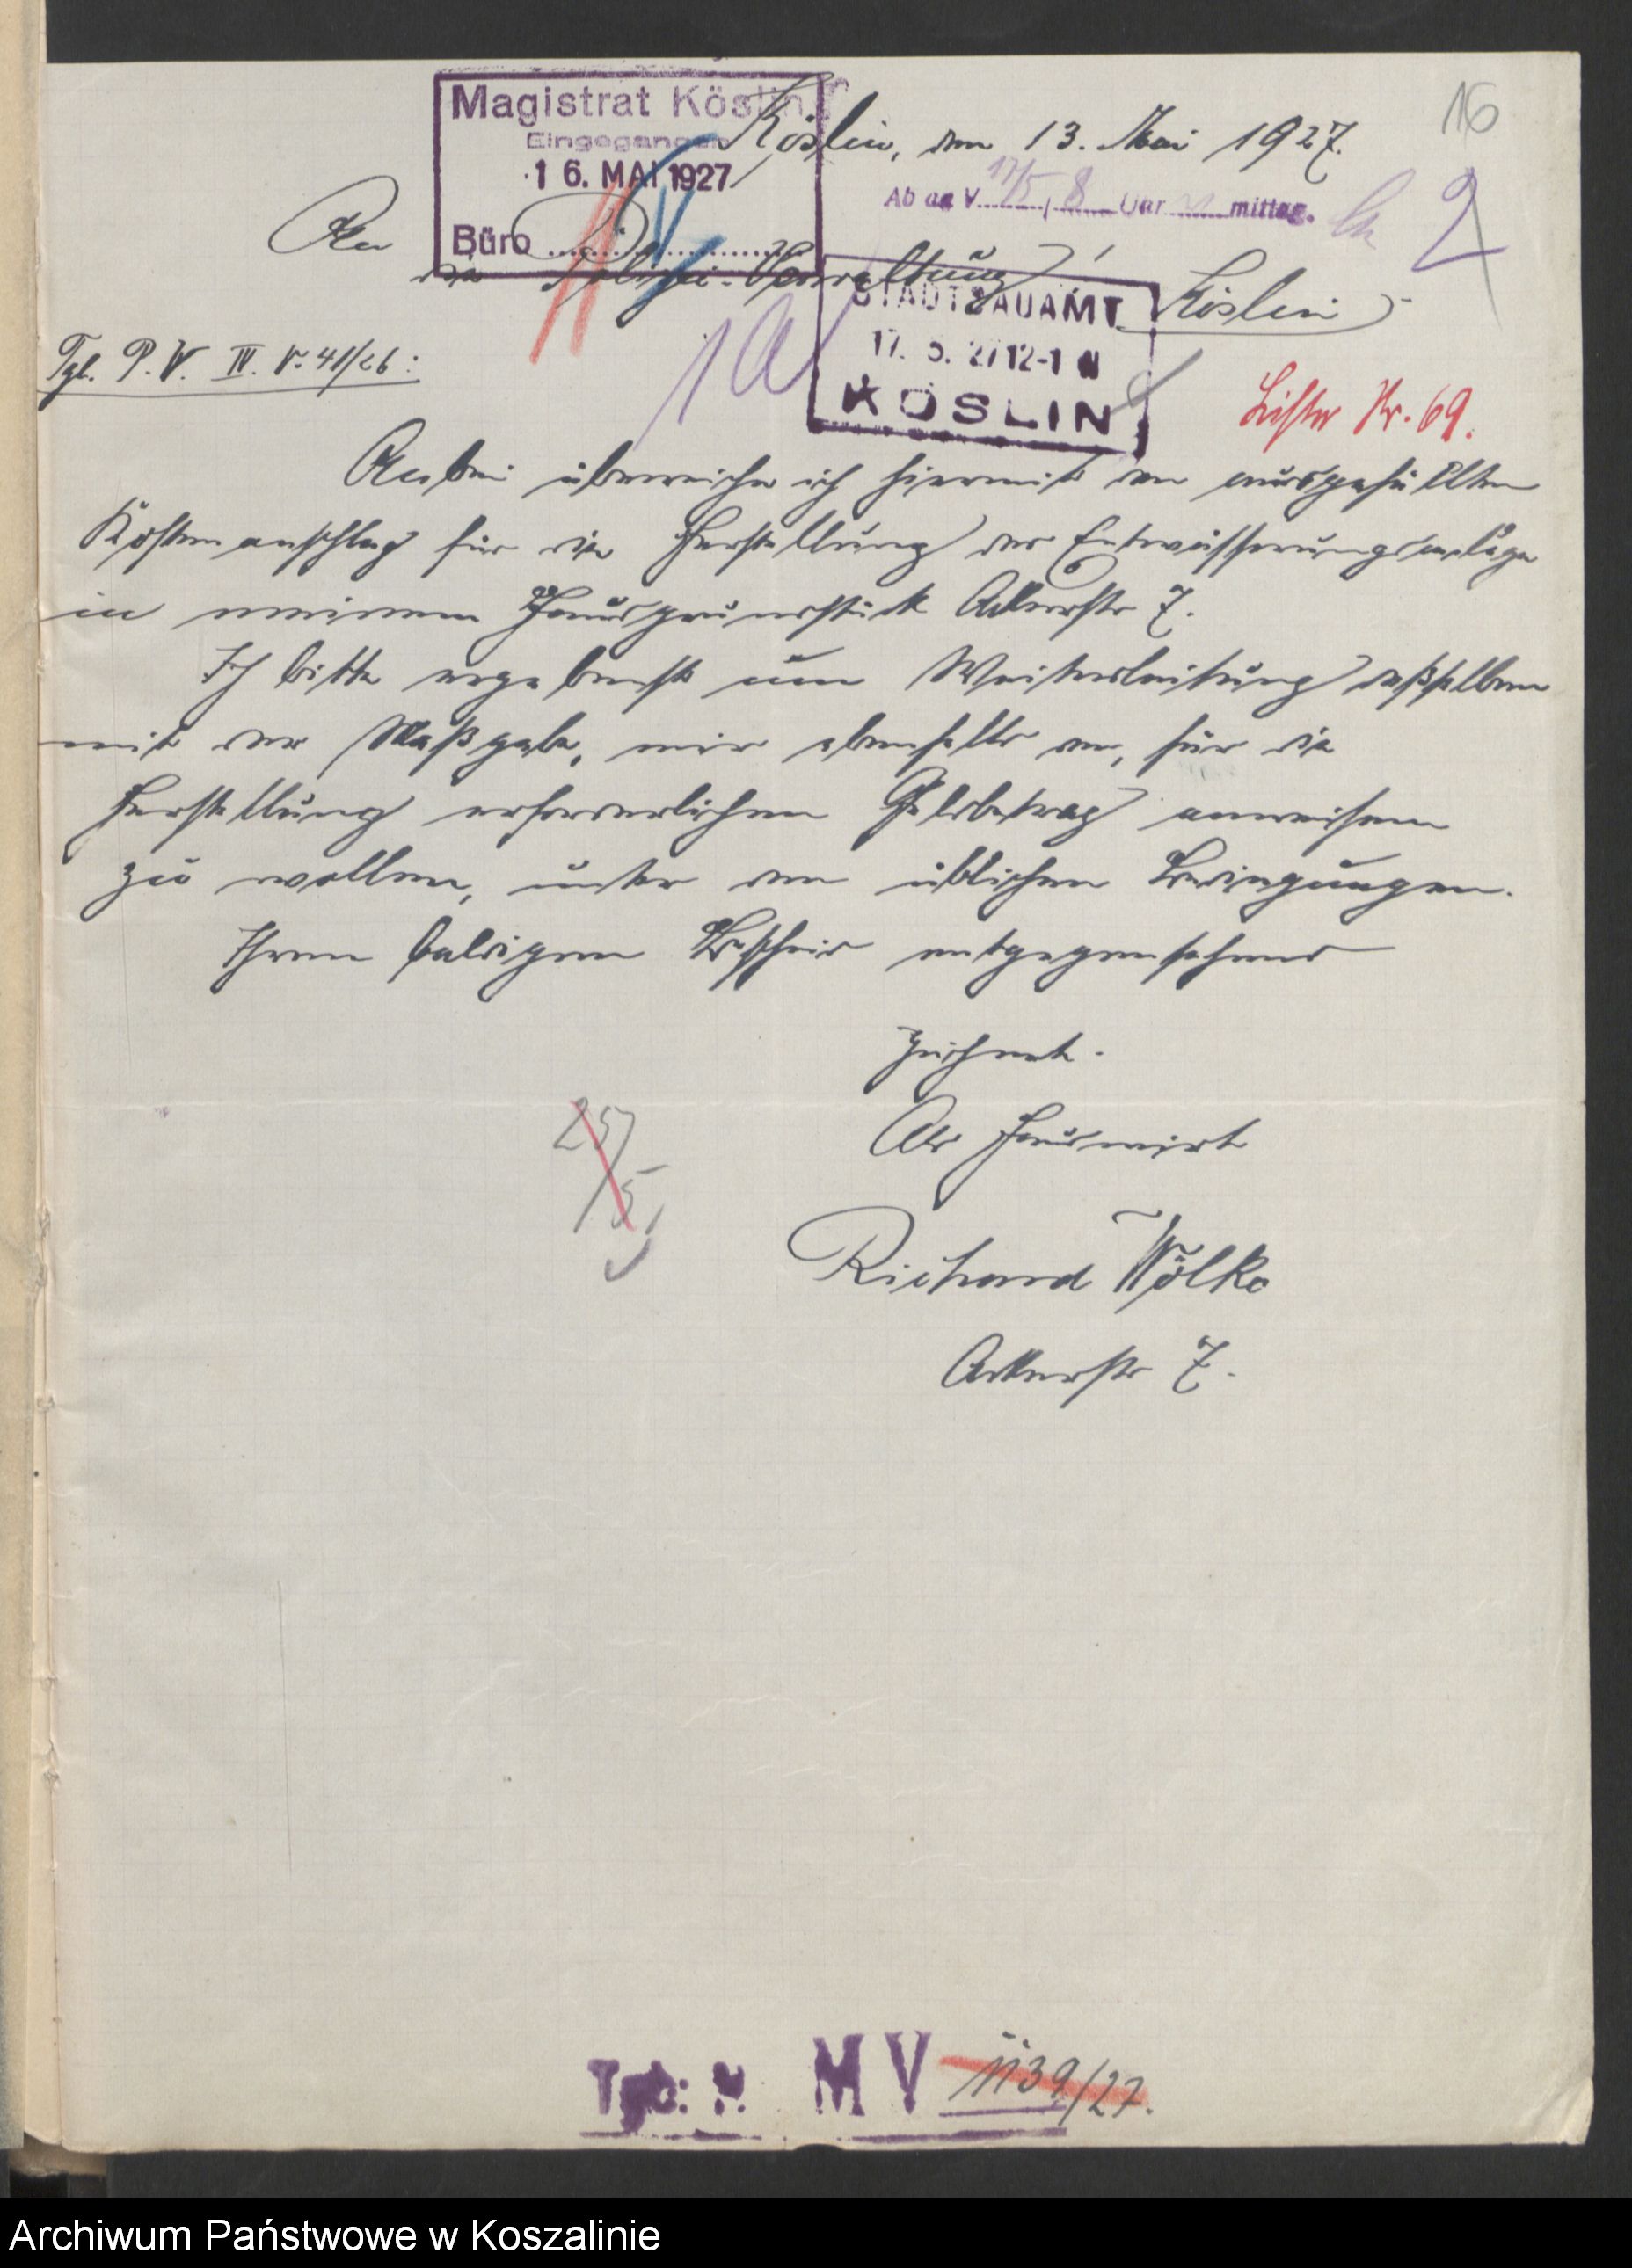 16
Magistrat Köslin
Eingegangen
16. MAI 1927
Büro
Köslin, den 13. Mai 1927.
Ab an V. 17/5 8 Uhr mittag.
2
An
die Polizei-Verwaltung
Köslin
STADTBAUAMT
17. 5. 27 12-1 N
KÖSLIN
Tgb. P. V. IV. V. 41/26:
Liste Nr. 69.
Anbei überreiche ich hiermit den ausgefüllten
Kostenanschlag für die Herstellung der Entwässerungsanlage
in meinem Hausgrundstück Ackerstr 7.
Ich bitte ergebenst um Weiterleitung deßselben
mit der Maßgabe, mir ebenfalls den, für die
Herstellung erforderlichen Geldbetrag anweisen
zu wollen, unter den üblichen Bedingungen.
Ihrem baldigen Bescheid entgegensehend
zeichnet.
Als Hauswirt
25/5
Richard Wölke
Ackerstr 7.
Tgb: N. M V 1139/27.
Archiwum Państwowe w Koszalinie